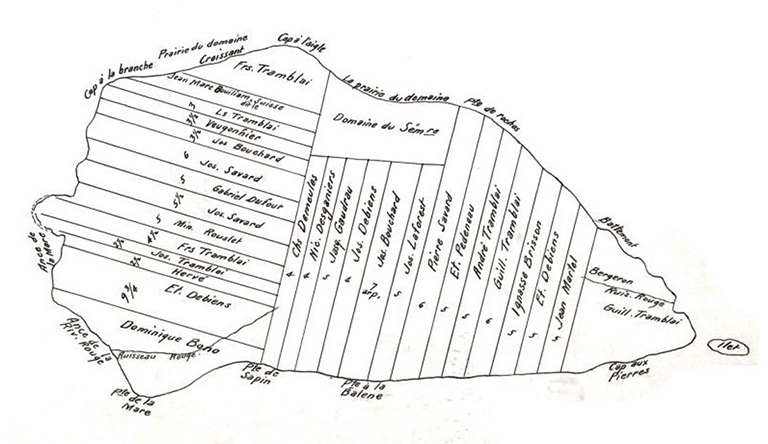 Cap à la branche
Prairie du domaine
Croissant
Cap à l'aigle
La prairie du domaine
Pte de roches
Battement
Frs. Tramblai
Jean Marc Bouliam, Suisse
dit le
Ls Tramblai
3
Veugonhier
3½
Jos Bouchard
3½
Jos. Savard
6
Gabriel Dufour
5
Jos Savard
5½
Min. Rouslet
5
Frs Tramblai
4½
Jos. Tramblai
2½
Hervé
2½
Et. Debiens
9¾
Dominique Bono
Ruisseau Rouge
Ance de
la Mare
Ance de la
Riv. Rouge
Pte de la
Mare
Pte de
Sapin
Pte à la
Balene
Cap aux
Pierres
Domaine du Sémre
Chs Demeules
4
Nic. Desganiers
4
Jacq. Gaudrau
5
Jos. Debiens
4
Jos. Bouchard
7
arp.
Jos. Laforest
5
Pierre Savard
6
Et. Pedeneau
5
André Tramblai
5
Guill. Tramblai
6
Ignasse Brisson
5
Et. Debiens
5
Jean Martel
5
Bergeron
Ruis. Rouge
Guill. Tramblai
Ilet